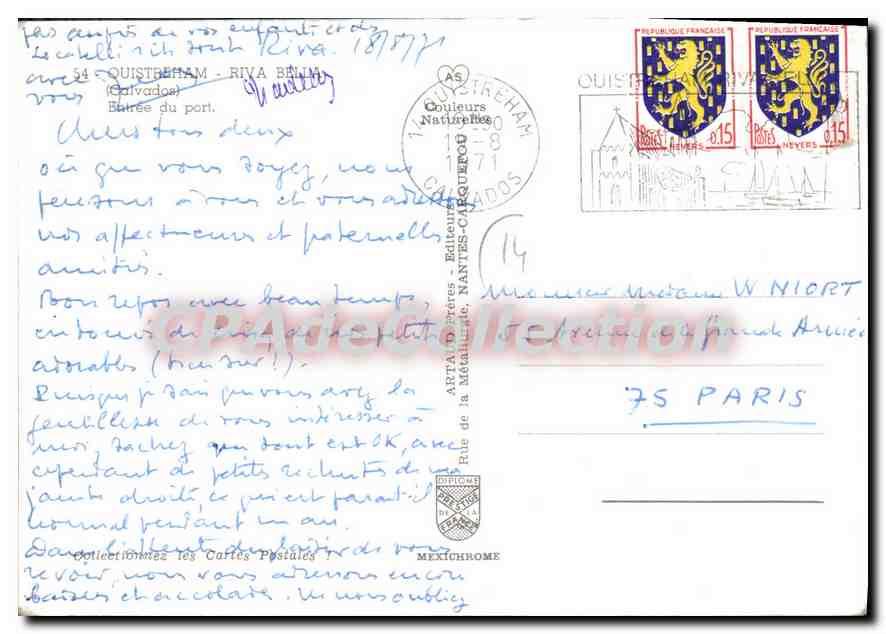 pas auprès de vos enfants et des
Locatelli s'ils sont Riva. 18/8/71
avec
vous
54 - OUISTREHAM - RIVA BELLA
(Calvados)
Entrée du port.
AS
Couleurs
Naturelles
Chers tous deux
où que vous soyez, nous
pensons à vous et vous adressons
vos affectueuses et paternelles
amitiés.
Bon repos avec beau temps,
petits
adorables (bien sûr!).
Puisque je sais que vous avez la
gentillesse de vous intéresser à
moi, sachez que tout est OK, avec
cependant de petites rechutes de ma
jambe droite, ce qui est paraît-il
normal pendant un an.
Dans l'attente du plaisir de vous
revoir, nous vous adressons encore
baisers et accolades. Ne nous oubliez
Collectionnez les Cartes Postales !
ARTAUD Frères - Editeurs
Rue de la Métallurgie, NANTES-CARQUEFOU
DIPLOME
PRESTIGE
DE LA
FRANCE
MEXICHROME
14 OUISTREHAM
-8
1971
CALVADOS
OUISTREHAM RIVA BELLA
REPUBLIQUE FRANÇAISE
POSTES
0,15
NEVERS
REPUBLIQUE FRANÇAISE
POSTES
0,15
NEVERS
14
Monsieur Madame W NIORT
5 Avenue de la Grande Armée
75 PARIS
CPAdeCollection